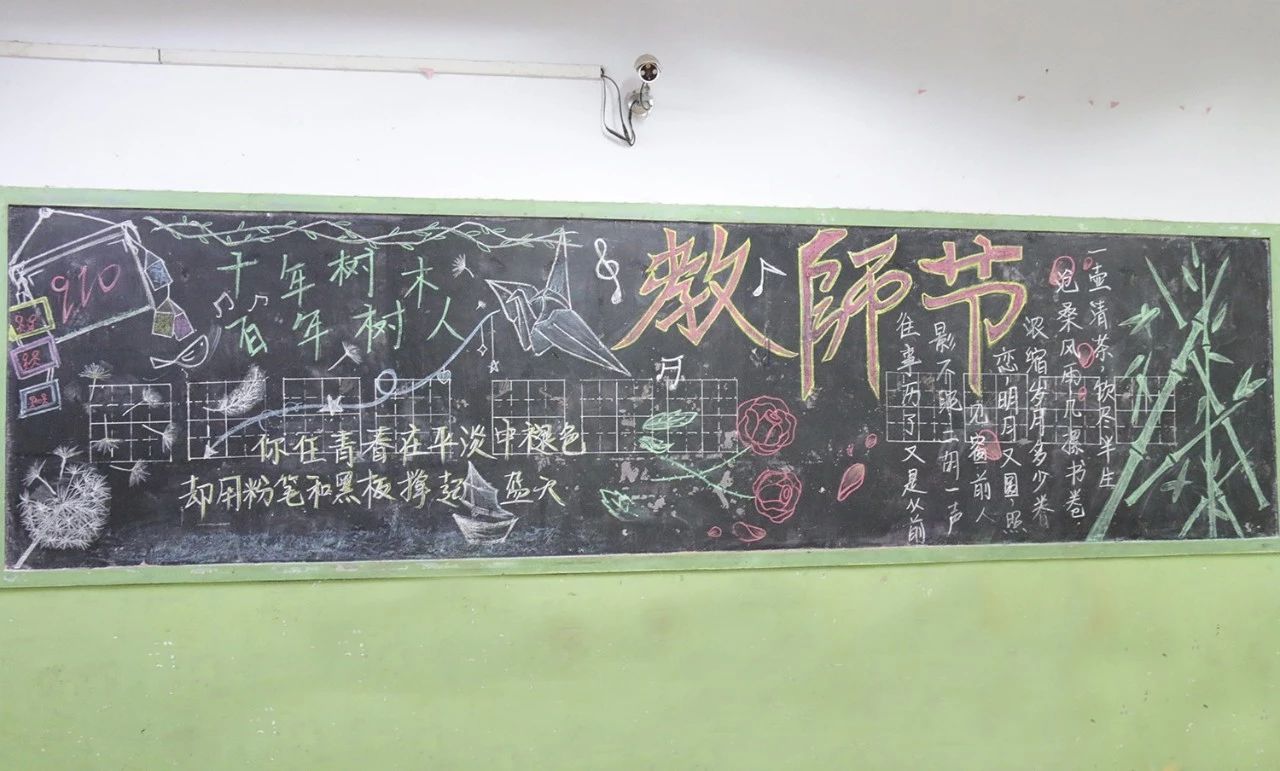 910
十年树木
百年树人
你任青春在平淡中褪色
却用粉笔和黑板撑起 蓝天
教師节
一壶清茶,饮尽半生
沧桑风雨几摞书卷
浓缩岁月多少眷
恋,明月又圆,照
见窗前人
影不眠 二胡一声
往事历了又是从前